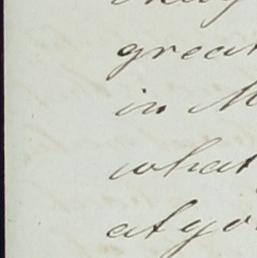 great
in M
what
at yo